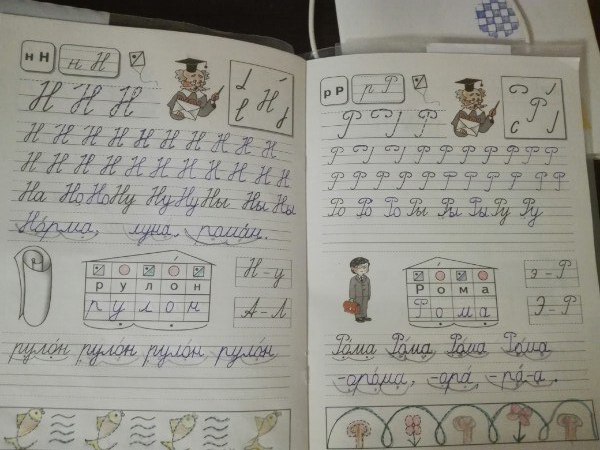 н Н н Н
Н Н Н
Н Н Н Н Н Н Н Н Н
Н Н Н Н Н Н Н Н Н Н
На Но Но Ну Ну Ну Ны Ны Ны
Но́рма, луна.
Н - у
р у л о н
р у л о н
А - Л
руло́н руло́н руло́н руло́н
р Р р Р
Р Р
Р Р Р Р Р Р Р Р
Р Р Р Р Р Р Р Р Р Р
Ро Ро Ро Ры Ры Ры Ру Ру
Р о м а
Р о м а
Э - Р
Ро́ма Ро́ма Ро́ма Ро́ма
-оро́ма, -ора́, -ра́-а.